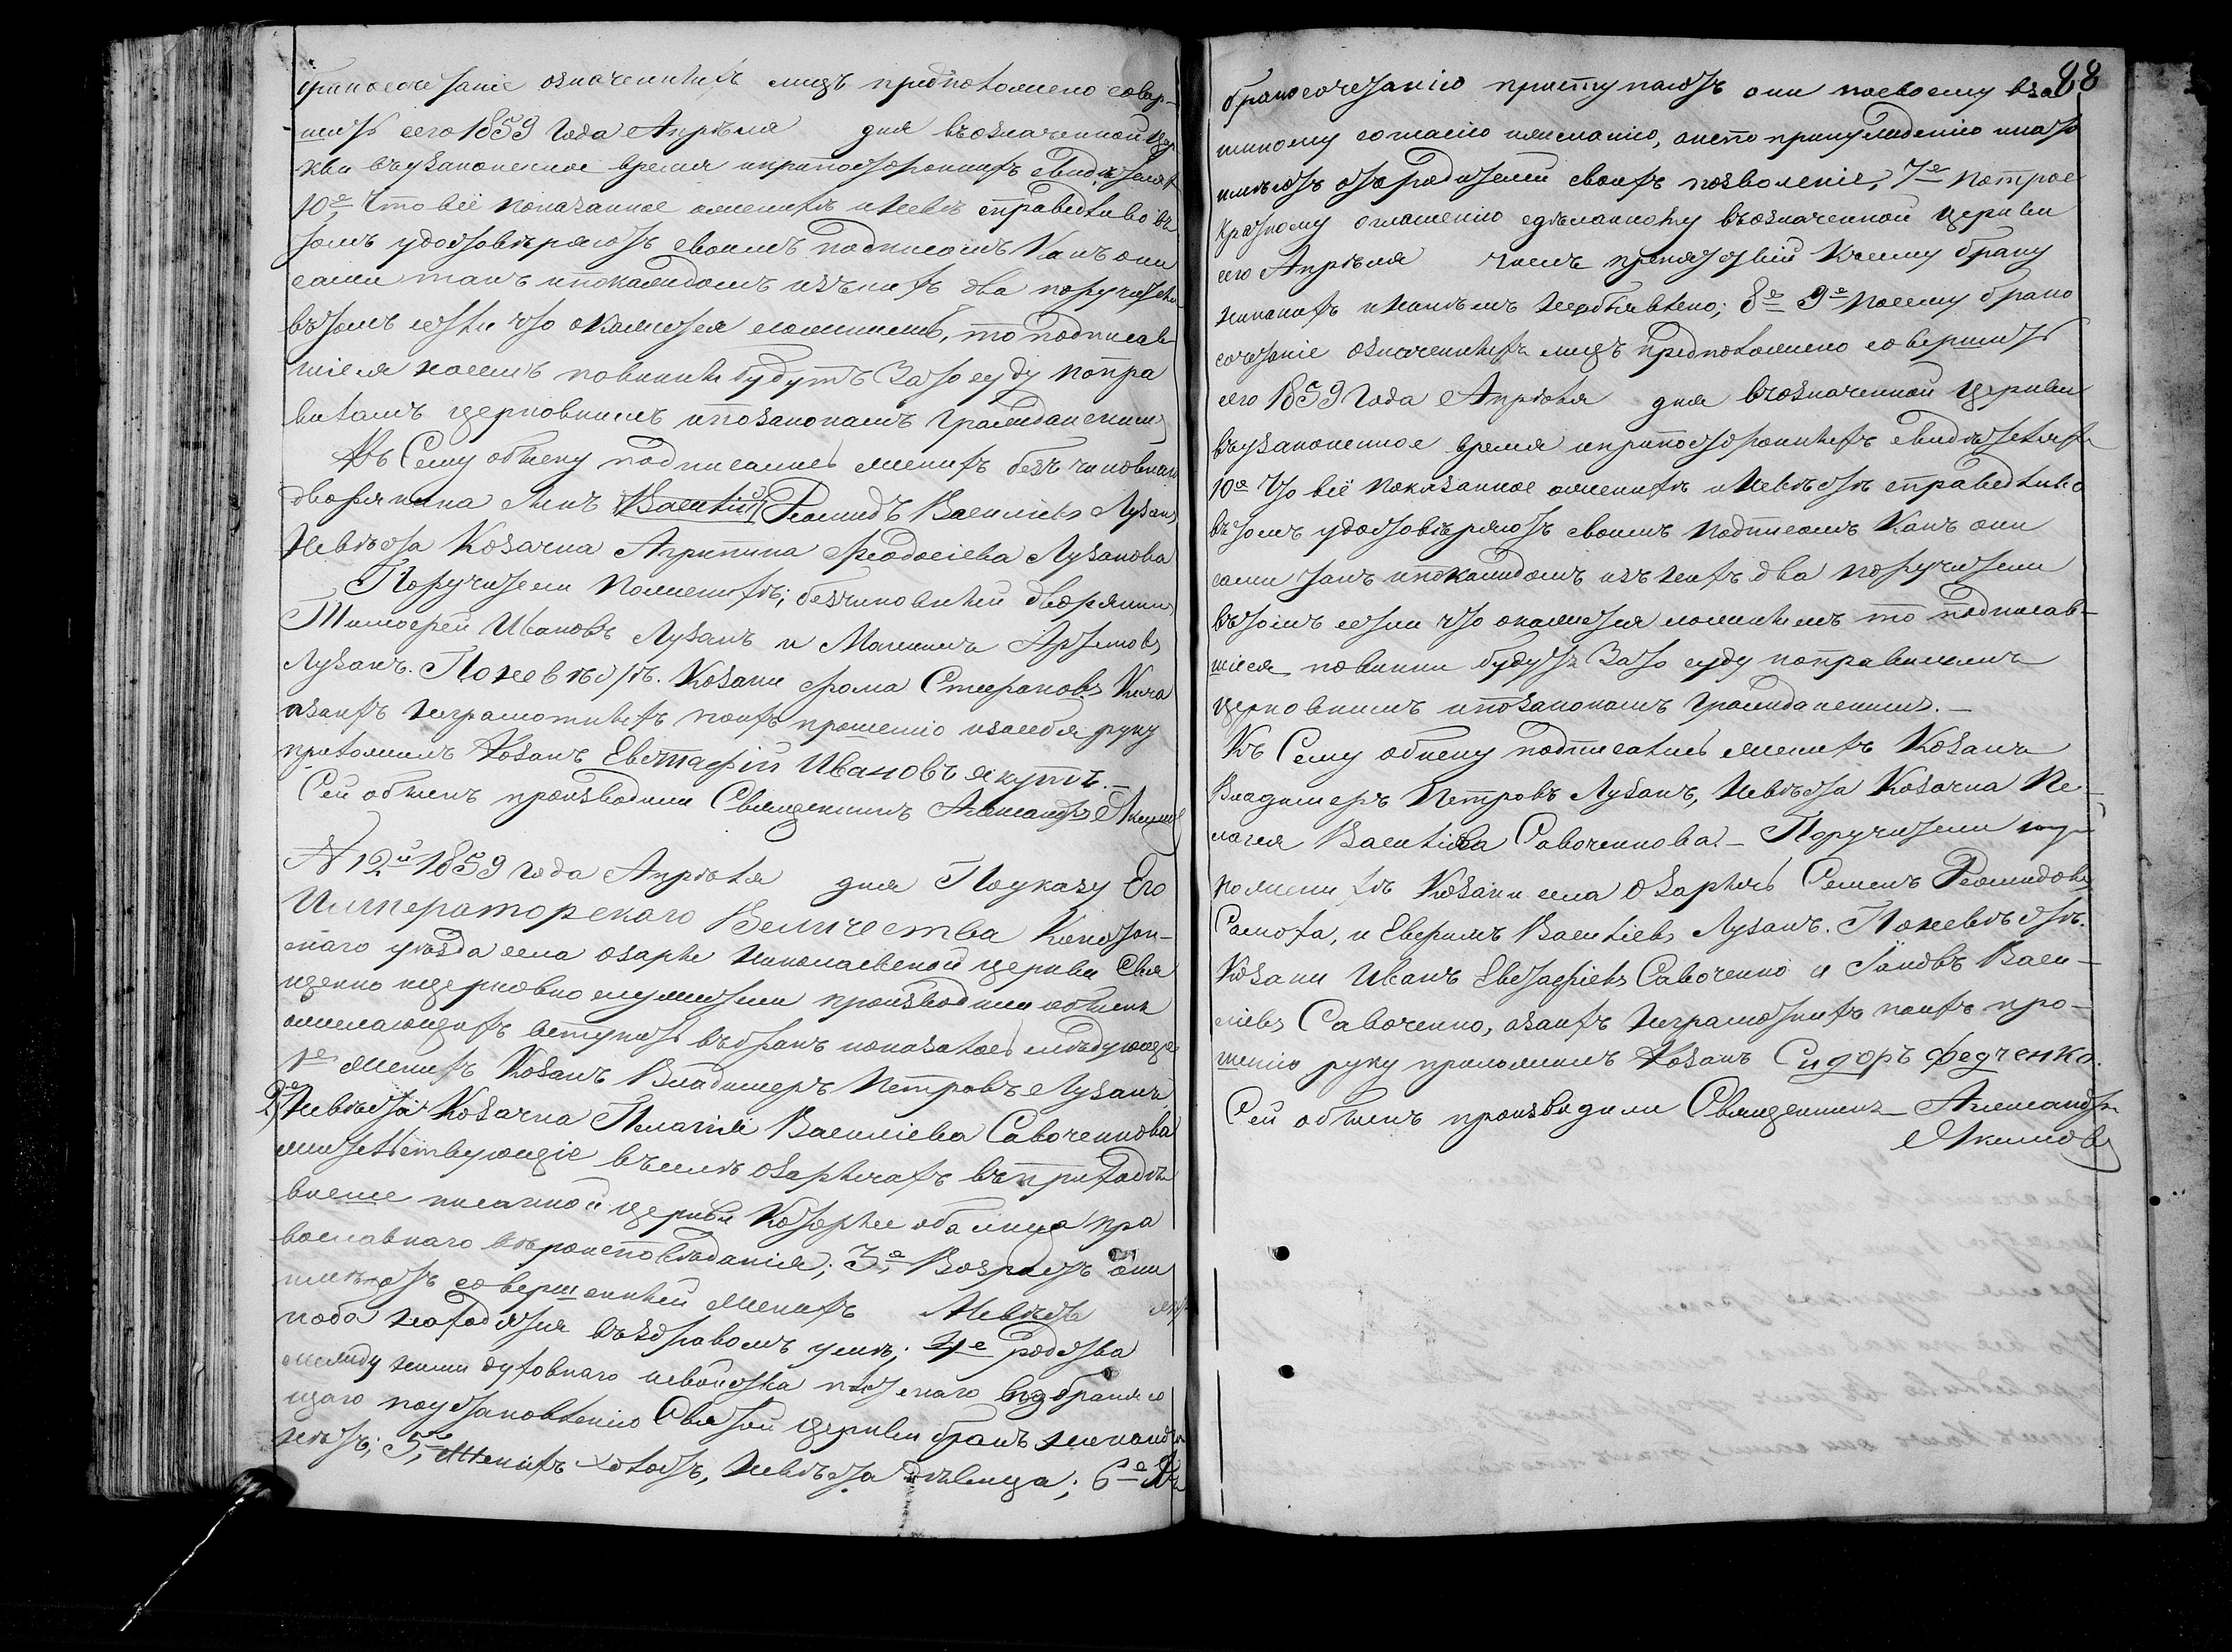 бракосочетаніе означенныхъ лицъ предположено совер-
шить сего 1859 года Апрѣля дня въ означенной Цер
кви въ узаконенное время и при посторонних свидѣтелях
10е, Что всё показанное о женихѣ и невѣстѣ справедливо въ
томъ удостовѣряютъ своимъ подписомъ Какъ они
сами такъ и по каждомъ изъ них два поручителя
въ томъ если что окажется ложнымъ, то подписав
шіеся к сему повинны будутъ за то суду по пра
виламъ церковнымъ и по законамъ гражданским
Къ Сему обыску подписались женихъ безчиновнаго
дворянина сынъ Василій Леонидъ Васильевъ Лузан
Невѣста Козачка Агрипина Феодосіева Лузанова
Поручители По женихѣ; безчиновный дворянин
Тимофей Ивановъ Лузанъ и Максимъ Артемовъ
Лузанъ. По невѣстѣ. Козаки Фома Стефановъ
а за них неграмотныхъ по их прошенію и за себя руку
приложилъ Козакъ Евстафій Ивановъ Якутъ.
Сей обыскъ производили Священникъ Александръ Якимов
N 12й 1859 года Апрѣля дня По указу Его
Императорскаго Величества Конотоп-
скаго уѣзда села Озаръ Николаевской церкви Свя
щенно и церковно служители производили обыскъ
о желающих вступить въ бракъ и оказалось слѣдующее
1е Женихъ Козакъ Владимеръ Петровъ Лузанъ
2е Невѣста Козачка Пелагія Васильева Савоченкова
жительствующіе въ селѣ Озарычахъ въ приходѣ
выше писанной церкви Которые оба лица пра
вославнаго вѣроисповѣданія; 3е Возрастъ они
имѣютъ совершенный Женихъ Невѣста лѣт
и оба находятся въ здравомъ умѣ; 4е родства
между ними духовнаго и свойства плотскаго возбраняю
щаго по установленію Святой церкви бракъ никакого
нѣтъ; 5е, Женихъ холостъ, Невѣста дѣвица; 6е Къ
88
бракосочетанію приступаютъ они по своему вза
имному согласію и желанію, а не по принужденію и на то
имѣютъ отъ родителей своихъ позволеніе; 7е По трое
кратному оглашенію сдѣланному въ означенной церкви
сего Апрѣля числъ препятствій к сему браку
никаких и никѣмъ не объявлено; 8е 9е По сему брако
сочетаніе означенныхъ лицъ предположено совершить
сего 1859 года Апрѣля дня в означенной церкви
въ узаконенное время и при посторонныхъ свидѣтелях
10е Что всё показанное о женихѣ и невѣстѣ справедливо
въ томъ удостовѣряютъ своимъ подписомъ Какъ они
сами такъ и по каждомъ изъ них два поручители
въ томъ если что окажется ложнымъ то подписав-
шіеся повинни будутъ за то суду по правиламъ
церковнымъ и по законамъ гражданскимъ.
Къ Сему обыску подписались женихъ Козакъ
Владимеръ Петровъ Лузанъ, Невѣста Козачка Пе-
лагея Васильева Савоченкова. Поручители
по женихѣ Козаки села Озаричь Семенъ Леонидовъ
Самота, и Еверимъ Васильевъ Лузанъ. По невѣстѣ.
Козаки Иванъ Евстафіевъ Савоченко и Іаковъ Васи-
ліевъ Савоченко, а за их неграмотных по их про-
шенію руку приложилъ Козакъ Сидоръ Федченко.
Сей обыскъ производили Священникъ Александръ
Якимовъ